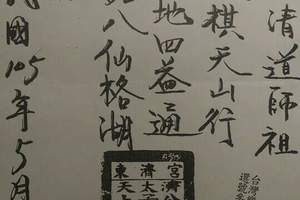 清道師祖
棋天山行
地四益通
八仙格湖
國105年5月
宮濟公
濟太
東天上
台灣
還號